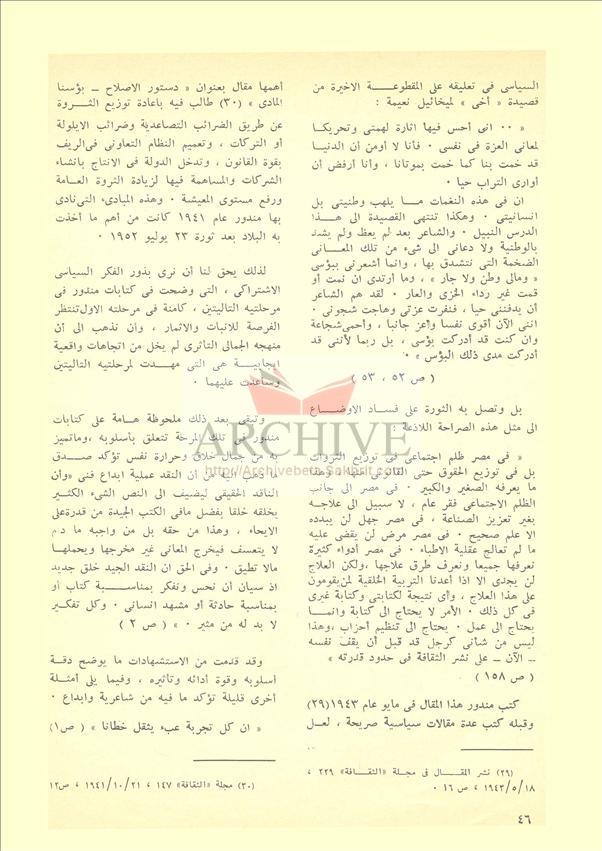 السياسى فى تعليقه على المقطوعة الاخيرة من
قصيدة « أخى » لميخائيل نعيمة :
« ٠٠ انى أحس فيها اثارة لهمتى وتحريكا
لمعانى العزة فى نفسى ٠ فأنا لا أومن أن الدنيا
قد خمت بنا كما خمت بموتانا ، وأنا أرفض أن
أوارى التراب حيا ٠
ان فى هذه النغمات ما يلهب وطنيتى بل
انسانيتى ٠ وهكذا تنتهى القصيدة الى هذا
الدرس النبيل ٠ والشاعر بعد لم يعظ ولم يشد
بالوطنية ولا دعانى الى شىء من تلك المعانى
الضخمة التى نتشدق بها ، وانما أشعرنى ببؤسى
« ومالى وطن ولا جار » ، وما أرتدى ان نمت أو
قمت غير رداء الخزى والعار ٠ لقد هم الشاعر
أن يدفننى حيا ، فنفرت عزتى وهاجت شجونى ٠
اننى الآن أقوى نفسا وأعز جانبا ، وأحمى شجاعة
وان كنت قد أدركت بؤسى ، بل ربما لأننى قد
أدركت مدى ذلك البؤس » ٠
( ص ٥٢ ، ٥٣ )
بل وتصل به الثورة على فساد الاوضاع
الى مثل هذه الصراحة اللاذعة :
« فى مصر ظلم اجتماعى فى توزيع الثروات
بل فى توزيع الحقوق حتى القانونى منها ، وهذا
ما يعرفه الصغير والكبير ٠ فى مصر الى جانب
الظلم الاجتماعى فقر عام ، لا سبيل الى علاجه
بغير تعزيز الصناعة ، فى مصر جهل لن يبدده
الا علم صحيح ٠ فى مصر مرض لن يقضى عليه
ما لم تعالج عقلية الاطباء ٠ فى مصر أدواء كثيرة
نعرفها جميعا ونعرف طرق علاجها ، ولكن العلاج
لن يجدى الا اذا أعدنا التربية الخلقية لمن يقومون
على هذا العلاج ، وأى نتيجة لكتابتى وكتابة غيرى
فى كل ذلك ٠ الأمر لا يحتاج الى كتابة وانما
يحتاج الى عمل ٠ يحتاج الى تنظيم أحزاب ، وهذا
ليس من شأنى كرجل قد قبل أن يقف نفسه
ـ الآن ـ على نشر الثقافة فى حدود قدرته »
( ص ١٥٨ )
كتب مندور هذا المقال فى مايو عام ١٩٤٣ (٢٩)
وقبله كتب عدة مقالات سياسية صريحة ، لعل
(٢٩) نشر المقال فى مجلة «الثقافة» ٢٢٩ ،
١٩٤٣/٥/١٨ ، ص ١٦ ٠
أهمها مقال بعنوان « دستور الاصلاح ـ بؤسنا
المادى » (٣٠) طالب فيه باعادة توزيع الثروة
عن طريق الضرائب التصاعدية وضرائب الايلولة
أو التركات ، وتعميم النظام التعاونى فى الريف
بقوة القانون ، وتدخل الدولة فى الانتاج بانشاء
الشركات والمساهمة فيها لزيادة الثروة العامة
ورفع مستوى المعيشة ٠ وهذه المبادىء التى نادى
بها مندور عام ١٩٤١ كانت من أهم ما أخذت
به البلاد بعد ثورة ٢٣ يوليو ١٩٥٢ ٠
لذلك يحق لنا أن نرى بذور الفكر السياسى
الاشتراكى ، التى وضحت فى كتابات مندور فى
مرحلتيه التاليتين ، كامنة فى مرحلته الاول تنتظر
الفرصة للانبات والاثمار ، وأن نذهب الى أن
منهجه الجمالى التأثرى لم يخل من اتجاهات واقعية
ايجابية هى التى مهدت لمرحلتيه التاليتين
وساعدت عليهما ٠
وتبقى بعد ذلك ملحوظة هامة على كتابات
مندور فى تلك المرحلة تتعلق بأسلوبه ، وما تميز
به من جمال خلاق وحرارة نفس تؤكد صدق
ما ذهب اليه من أن النقد عملية ابداع فنى «وأن
الناقد الحقيقى ليضيف الى النص الشىء الكثير
يخلقه خلقا بفضل ما فى الكتب الجيدة من قدرة على
الايحاء ، وهذا من حقه بل من واجبه ما دم
لا يتعسف فيخرج المعانى غير مخرجها ويحملها
مالا تطيق ٠ وفى الحق ان النقد الجيد خلق جديد
اذ سيان أن نحس ونفكر بمناسبة كتاب أو
بمناسبة حادثة أو مشهد انسانى ٠ وكل تفكير
لا بد له من مثير ٠ » ( ص ٢ )
وقد قدمت من الاستشهادات ما يوضح دقة
أسلوبه وقوة أدائه وتأثيره ، وفيما يلى أمثلة
أخرى قليلة تؤكد ما فيه من شاعرية وابداع ٠
« ان كل تجربة عبء يثقل خطانا » ( ص١)
(٣٠) مجلة «الثقافة» ١٤٧ ، ١٩٤١/١٠/٢١ ، ص١٢
٤٦
ARCHIVE
http://Archivebeta.Sakhrit.com